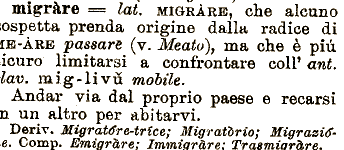 migràre = lat. MIGRÀRE, che alcuno
sospetta prenda origine dalla radice di
ME-ÀRE passare (v. Meato), ma che è più
sicuro limitarsi a confrontare coll' ant.
slav. mig-livŭ mobile.
Andar via dal proprio paese e recarsi
in un altro per abitarvi.
Deriv. Migratóre-tríce; Migratòrio; Migrazió-
ne. Comp. Emigràre; Immigràre; Trasmigràre.